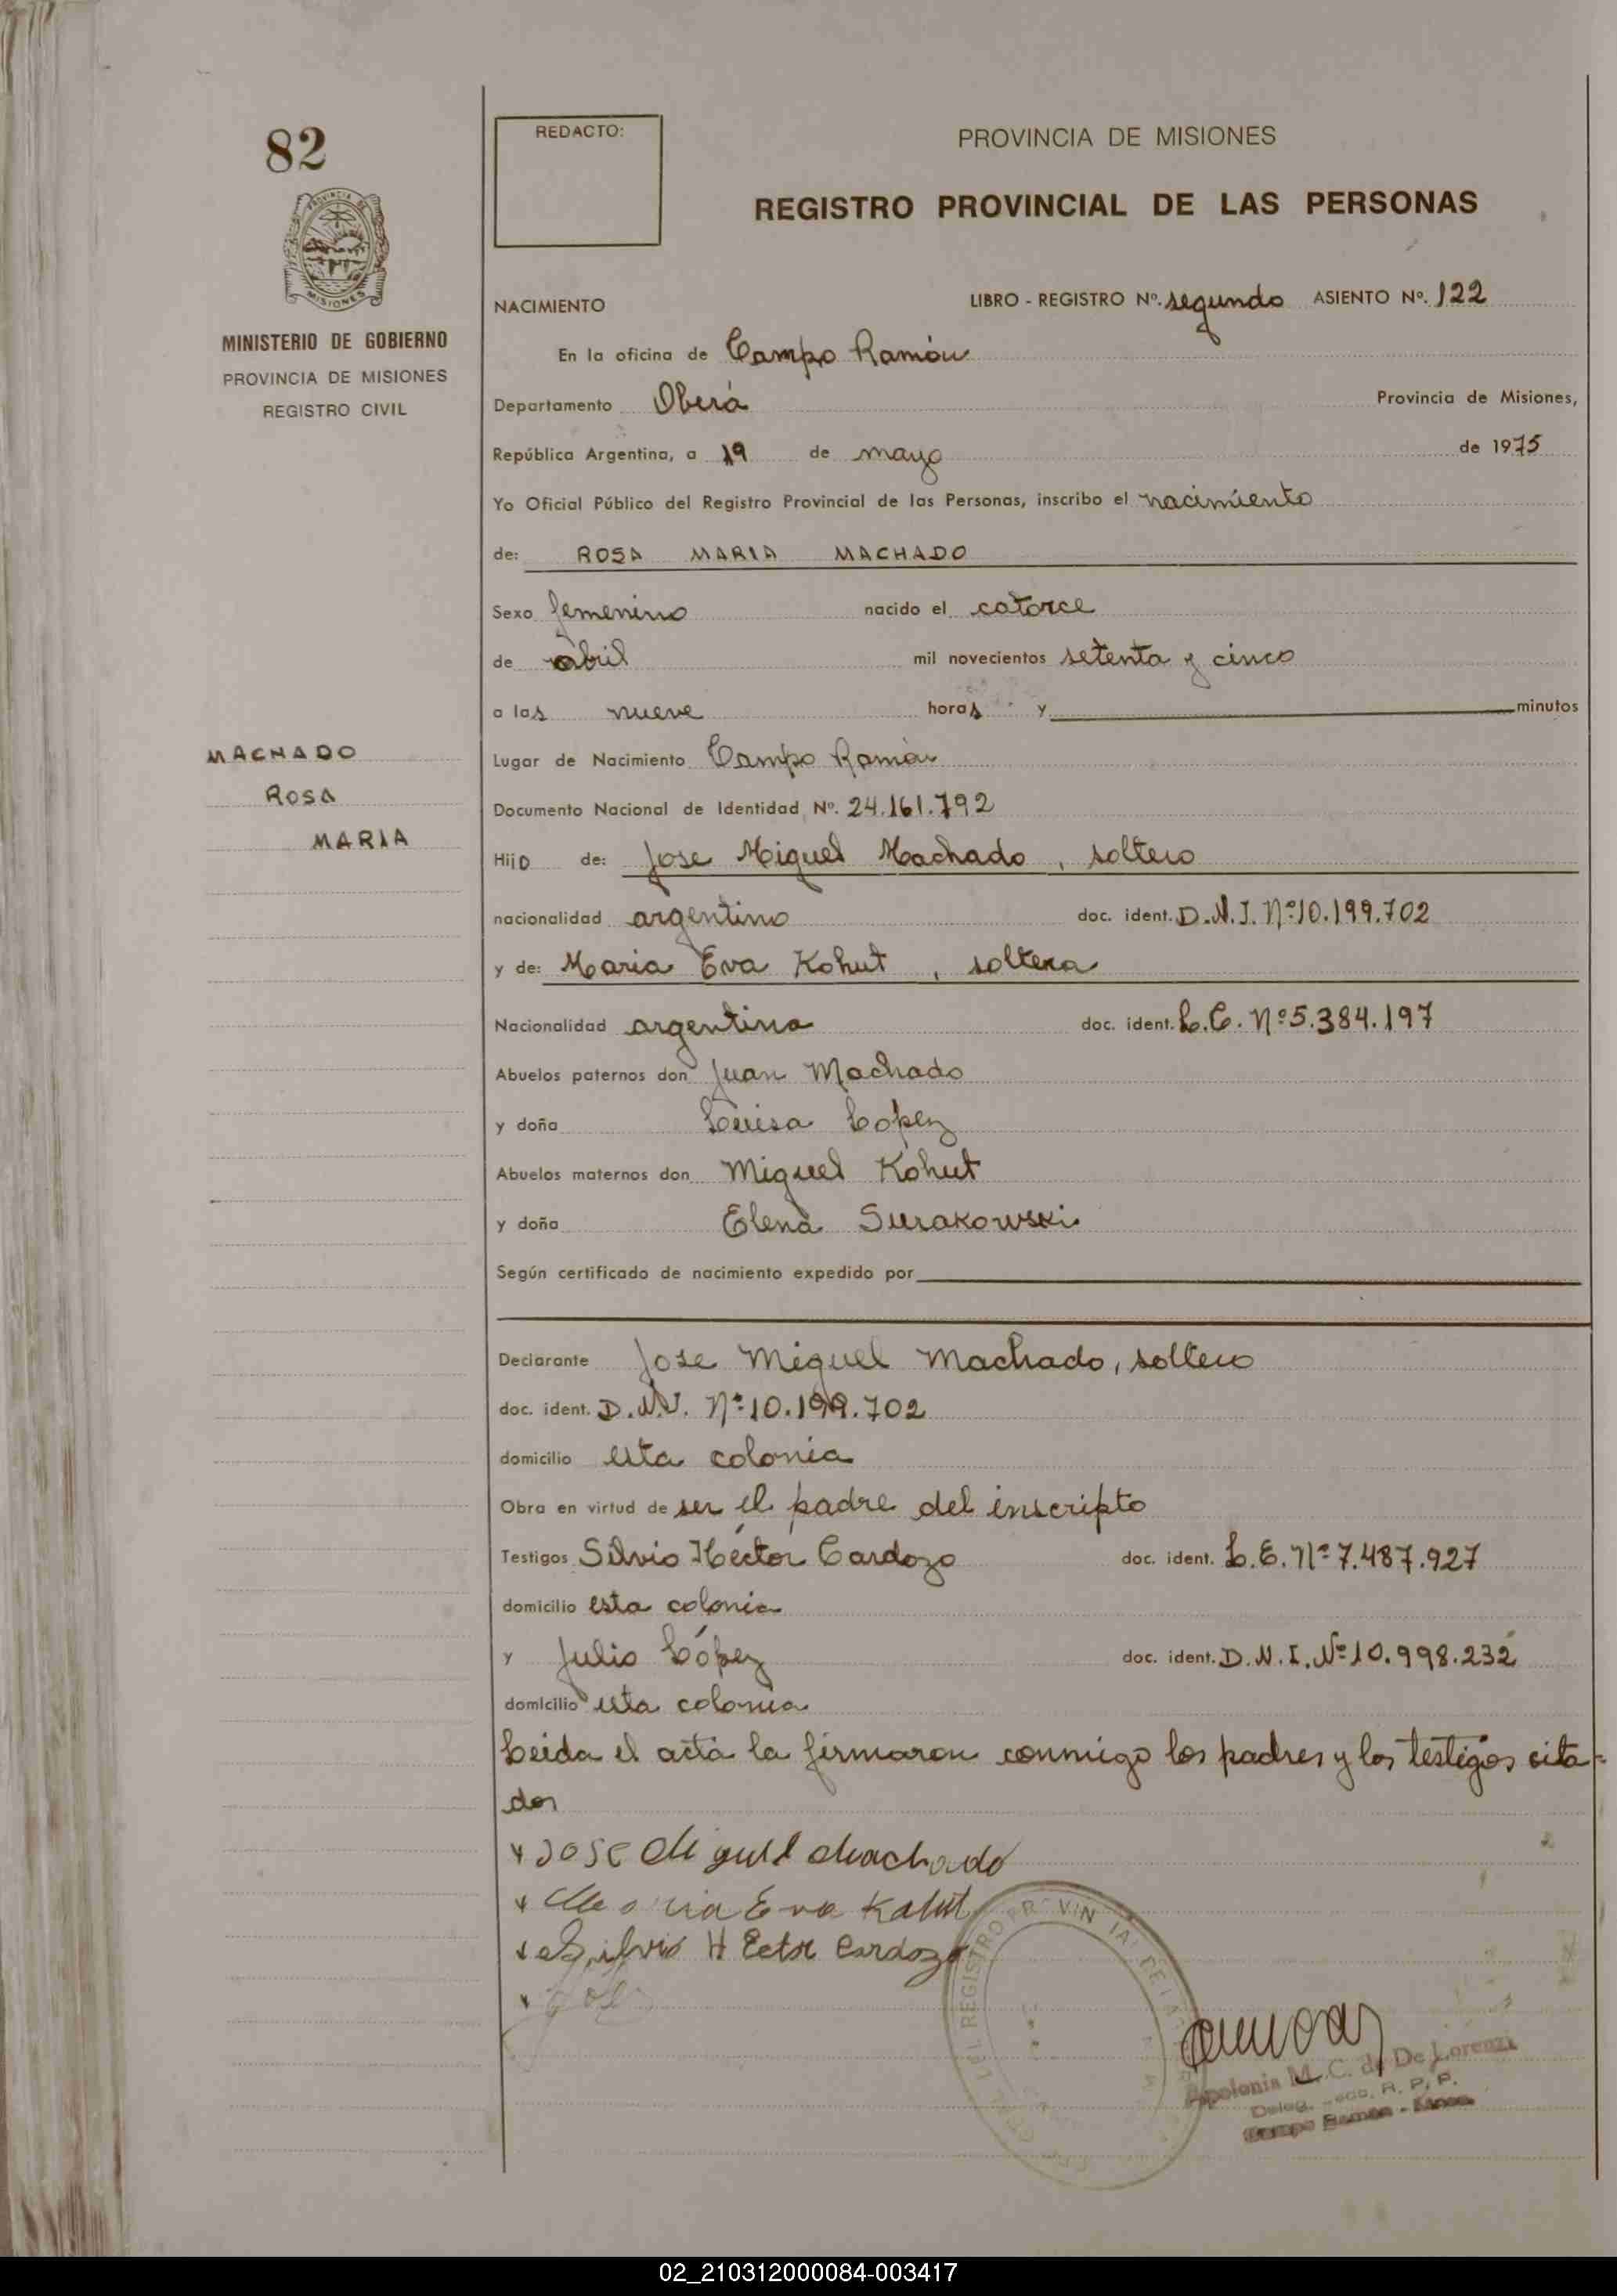 82
PROVINCIA DE
MISIONES
MINISTERIO DE GOBIERNO
PROVINCIA DE MISIONES
REGISTRO CIVIL
MACHADO
ROSA
MARIA
REDACTO:
PROVINCIA DE MISIONES
REGISTRO PROVINCIAL DE LAS PERSONAS
NACIMIENTO LIBRO - REGISTRO Nº. segundo ASIENTO Nº. 122
En la oficina de Campo Ramón
Departamento Oberá Provincia de Misiones,
República Argentina, a 19 de mayo de 1975
Yo Oficial Público del Registro Provincial de las Personas, inscribo el nacimiento
de: ROSA MARIA MACHADO
Sexo femenino nacido el catorce
de abril mil novecientos setenta y cinco
a las nueve horas y minutos
Lugar de Nacimiento Campo Ramón
Documento Nacional de Identidad, Nº. 24.161.792
Hijo de: Jose Miguel Machado, soltero
nacionalidad argentino doc. ident. D.N.I. Nº 10.199.702
y de: Maria Eva Kohut, soltera
Nacionalidad argentina doc. ident. L.C. Nº 5.384.197
Abuelos paternos don Juan Machado
y doña Luisa López
Abuelos maternos don Miguel Kohut
y doña Elena Surakowski
Según certificado de nacimiento expedido por
Declarante Jose Miguel Machado, soltero
doc. ident. D.N.I. Nº 10.199.702
domicilio esta colonia
Obra en virtud de ser el padre del inscripto
Testigos Silvio Héctor Cardozo doc. ident. L.E. Nº 7.487.927
domicilio esta colonia
y Julio López doc. ident. D.N.I. Nº 10.998.232
domicilio esta colonia
Leida el acta la firmaron conmigo los padres y los testigos cita-
dos
Jose Miguel Machado
Maria Eva Kohut
Silvio Hector Cardozo
Apolonia M. C. de De Lorenzi
R. P. P.
Campo Ramón
02_210312000084-003417